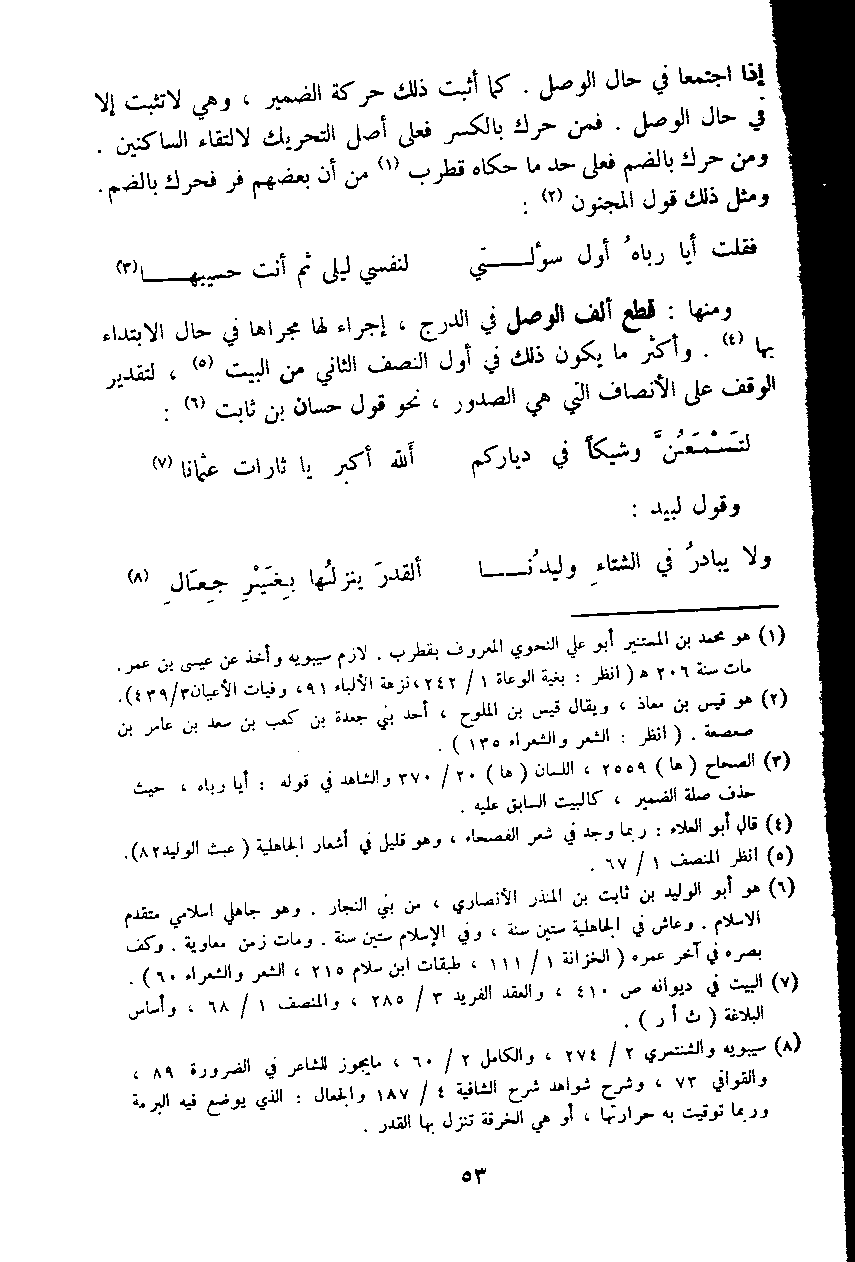 إذا اجتمعا في حال الوصل . كما أثبت ذلك حركة الضمير ، وهي لاتثبت إلا
في حال الوصل . فمن حرك بالكسر فعلى أصل التحريك لالتقاء الساكنين .
ومن حرك بالضم فعلى حد ما حكاه قطرب (١) من أن بعضهم فر فحرك بالضم.
ومثل ذلك قول المجنون (٢) :
فقلت أيا رباهُ أول سوٴلـــــتي لنفسي ليلى ثم أنت حسيبهـــــا(٣)
ومنها : قطع ألف الوصل في الدرج ، إجراء لها مجراها في حال الابتداء
بها (٤) . وأكثر ما يكون ذلك في أول النصف الثاني من البيت (٥) ، لتقدير
الوقف على الأنصاف التي هي الصدور ، نحو قول حسان بن ثابت (٦) :
لتَسْمَعُنَّ وشيكاً في دياركم أَلله أكبر يا ثارات عثمانا (٧)
وقول لبيد :
ولا يبادرُ في الشتاءِ وليدُنـــــا ألقدرَ ينزلُها بِغَيْرِ جِعَالِ (٨)
(١) هو محمد بن المستنير أبو علي النحوي المعروف بقطرب . لازم سيبويه وأخذ عن عيسى بن عمر.
مات سنة ٢٠٦ ه ( انظر : بغية الوعاة ١ / ٢٤٢،نزهة الألباء ٩١، وفيات الأعيان٤٣٩/٣).
(٢) هو قيس بن معاذ ، ويقال قيس بن الملوح ، أحد بني جعدة بن كعب بن سعد بن عامر بن
صعصعة . ( انظر : الشعر والشعراء ١٣٥ ) .
(٣) الصحاح ( ها ) ٢٥٥٩ ، اللسان ( ها ) ٢٠ / ٣٧٠ والشاهد في قوله : أيا رباه ، حيث
حذف صلة الضمير ، كالبيت السابق عليه .
(٤) قال أبو العلاء : ربما وجد في شعر الفصحاء ، وهو قليل في أشعار الجاهلية ( عبث الوليد٨٢).
(٥) انظر المنصف ١ / ٦٧ .
(٦) هو أبو الوليد بن ثابت بن المنذر الأنصاري ، من بني النجار . وهو جاهلي اسلامي متقدم
الاسلام . وعاش في الجاهلية ستين سنة ، وفي الإسلام ستين سنة . ومات زمن معاوية . وكف
بصره في آخر عمره ( الخزانة ١ / ١١١ ، طبقات ابن سلام ٢١٥ ، الشعر والشعراء ٦٠ ) .
(٧) البيت في ديوانه ص ٤١٠ ، والعقد الفريد ٣ / ٢٨٥ ، والمنصف ١ / ٦٨ ، وأساس
البلاغة ( ث أ ر ) .
(٨) سيبويه والشنتمري ٢ / ٢٧٤ ، والكامل ٢ / ٦٠ ، مايجوز للشاعر في الضرورة ٨٩ ،
والقوافي ٧٣ ، وشرح شواهد شرح الشافية ٤ / ١٨٧ والجعال : الذي يوضع فيه البرمة
وربما توقيت به حرارتها ، أو هي الخرقة تنزل بها القدر .
٥٣